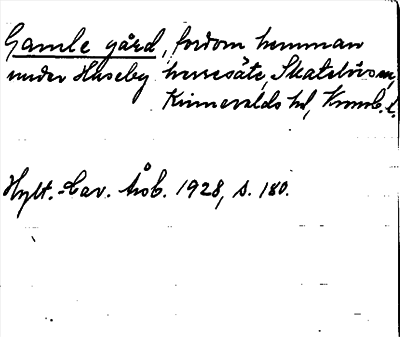 Gamle gård, fordom hemman
under Huseby herresäte, Skatelövs sn,
Kinnevalds hd, Kronob. l.
Hylt.-Cav. årsb. 1928, s. 180.